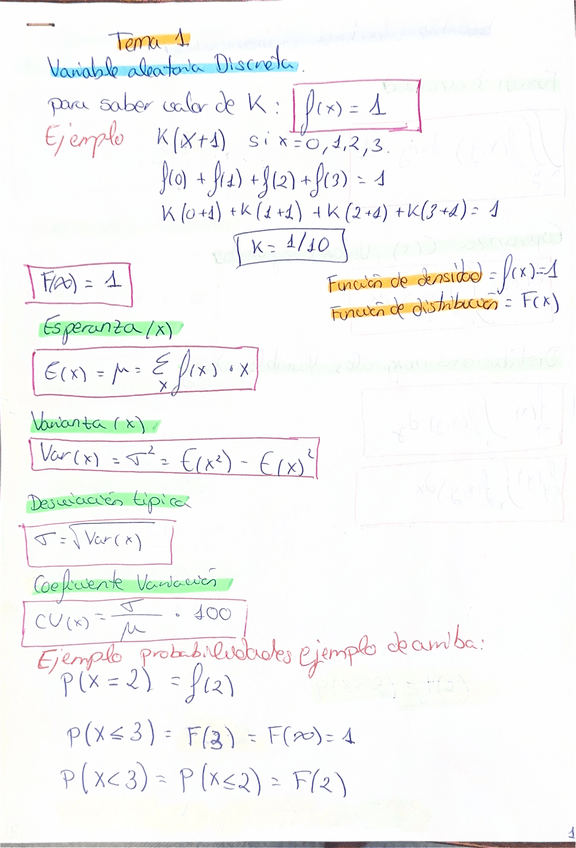 Tema 1.
Variable aleatoria Discreta.
para saber valor de K: f(x) = 1
Ejemplo K(x+1) si x=0,1,2,3.
f(0) + f(1) + f(2) + f(3) = 1
K(0+1) + K(1+1) + K(2+1) + K(3+1) = 1
K = 1/10
F(∞) = 1
Función de densidad = f(x)=1
Función de distribución = F(x)
Esperanza (x)
E(x) = μ = Σ f(x) · x
x
Varianta (x)
Var(x) = σ² = E(x²) - E(x)²
Desviación típica
σ = √Var(x)
Coeficiente Variación
CV(x) = σ/μ · 100
Ejemplo probabilidades ejemplo de arriba:
P(x = 2) = f(2)
P(x ≤ 3) = F(3) = F(∞) = 1
P(x < 3) = P(x ≤ 2) = F(2)
1